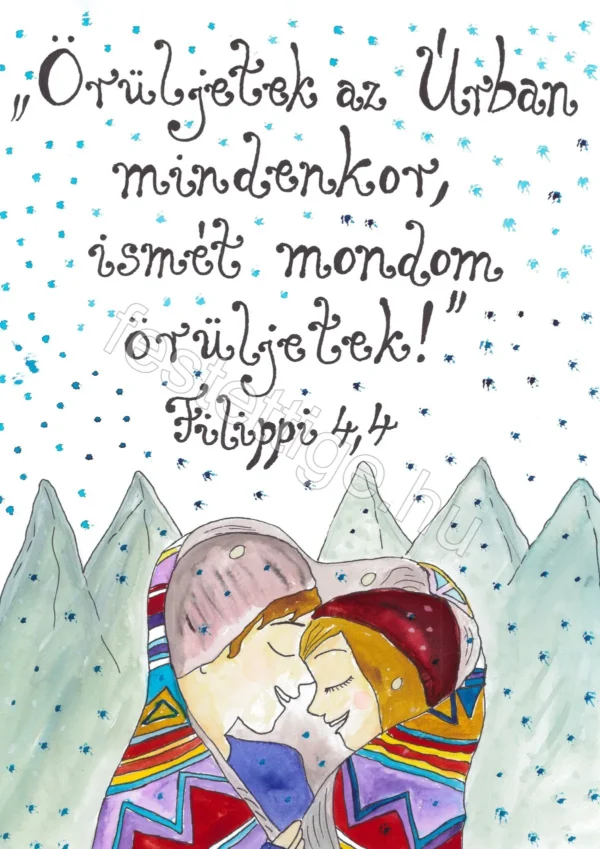 „Örüljetek az Úrban
mindenkor,
ismét mondom
örüljetek!”
Filippi 4,4
festettige.hu